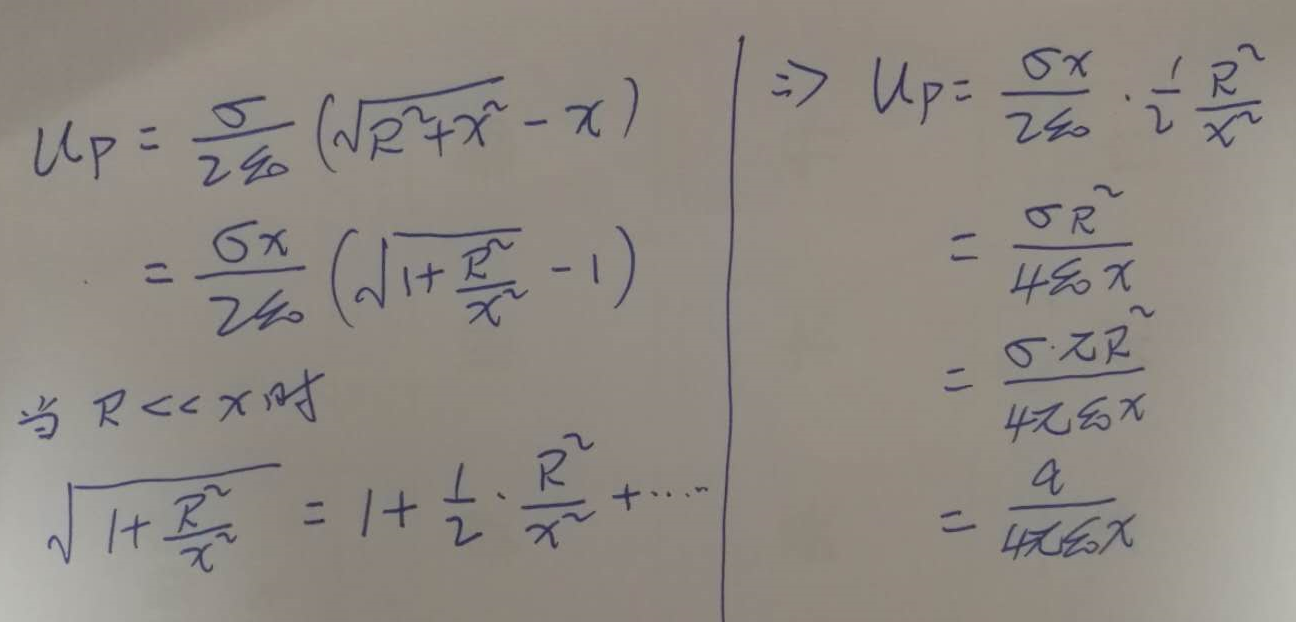 U_P = σ/2ε₀ (√(R²+x²) - x)
= σx/2ε₀ (√(1+R²/x²) - 1)
当 R << x 时
√(1+R²/x²) = 1 + 1/2 · R²/x² + ······
=> U_P = σx/2ε₀ · 1/2 R²/x²
= σR²/4ε₀x
= σ·πR²/4πε₀x
= q/4πε₀x